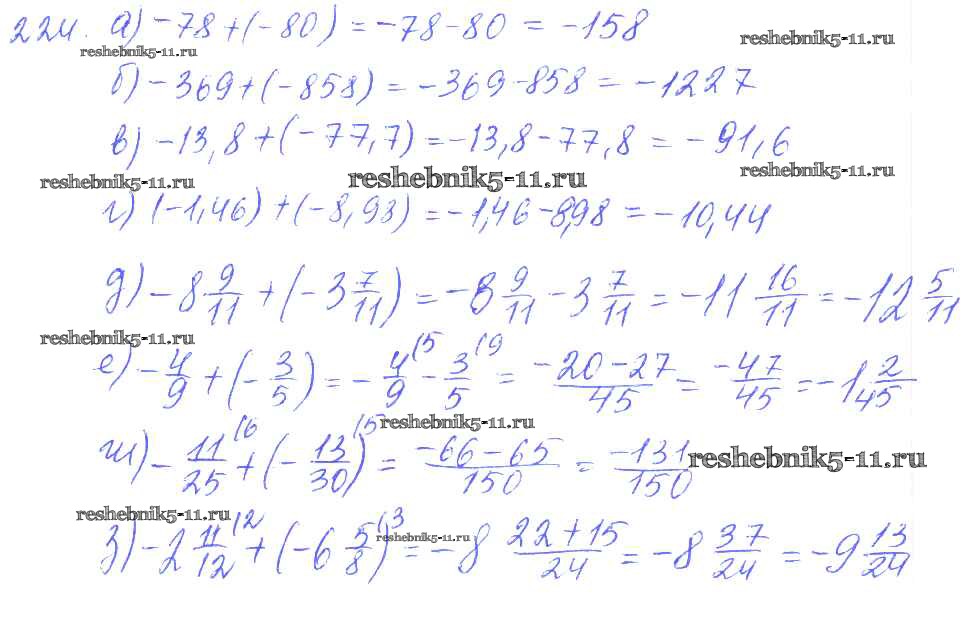 224. а) -78+(-80) = -78-80 = -158
reshebnik5-11.ru
reshebnik5-11.ru
б) -369+(-858) = -369-858 = -1227
в) -13,8+(-77,7) = -13,8-77,8 = -91,6
reshebnik5-11.ru
reshebnik5-11.ru
reshebnik5-11.ru
г) (-1,46)+(-8,98) = -1,46-8,98 = -10,44
д) -8 9/11 + (-3 7/11) = -8 9/11 - 3 7/11 = -11 16/11 = -12 5/11
reshebnik5-11.ru
е) -4/9 + (-3/5) = -4/9 (5 - 3/5 (9 = -20-27/45 = -47/45 = -1 2/45
reshebnik5-11.ru
ж) -11/25 (6 + (-13/30) (5 = -66-65/150 = -131/150
reshebnik5-11.ru
reshebnik5-11.ru
з) -2 11/12 (2 + (-6 5/8) (3 = -8 22+15/24 = -8 37/24 = -9 13/24
reshebnik5-11.ru